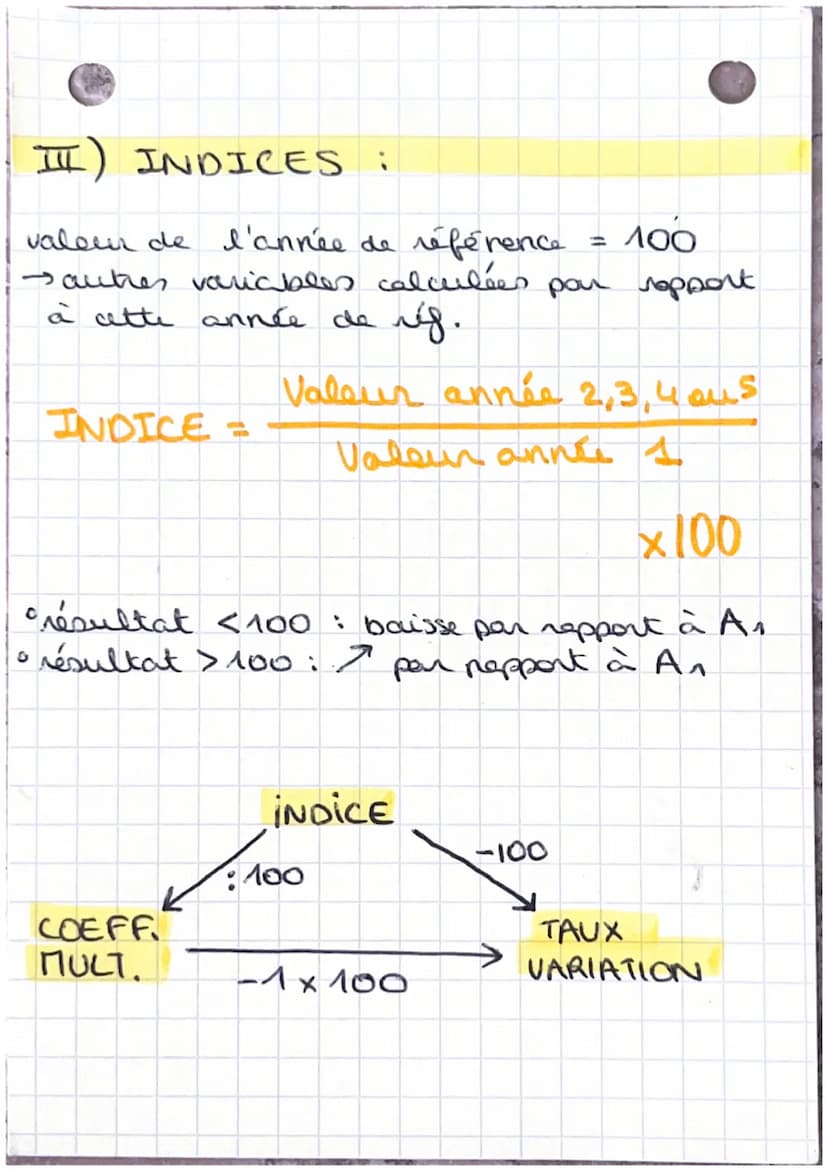 III) INDICES :
valeur de l'année de référence = 100
→ autres variables calculées par rapport
à cette année de réf.
INDICE = Valeur année 2,3,4 ou 5
Valeur année 1
x100
° résultat <100 : baisse par rapport à A1
° résultat >100 : ↗ par rapport à A1
INDICE
-100
:100
COEFF. MULT.
TAUX VARIATION
-1 x 100